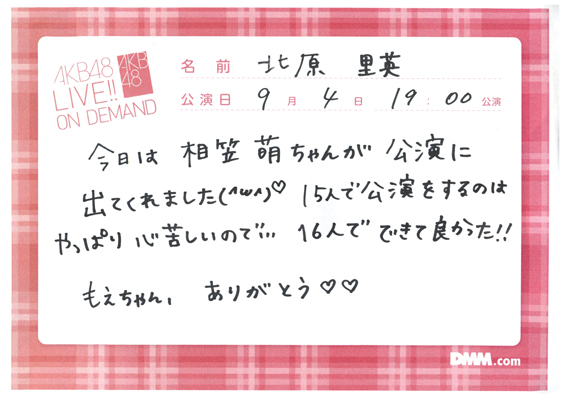 AKB48
LIVE!!
ON DEMAND
AKB
48
名前 北原 里英
公演日 9月4日 19:00公演
今日は 相笠 萌ちゃんが 公演に
出てくれました(^ω^)♡ 15人で公演をするのは
やっぱり 心苦しいので… 16人で できて良かった!!
もえちゃん、 ありがとう♡♡
DMM.com